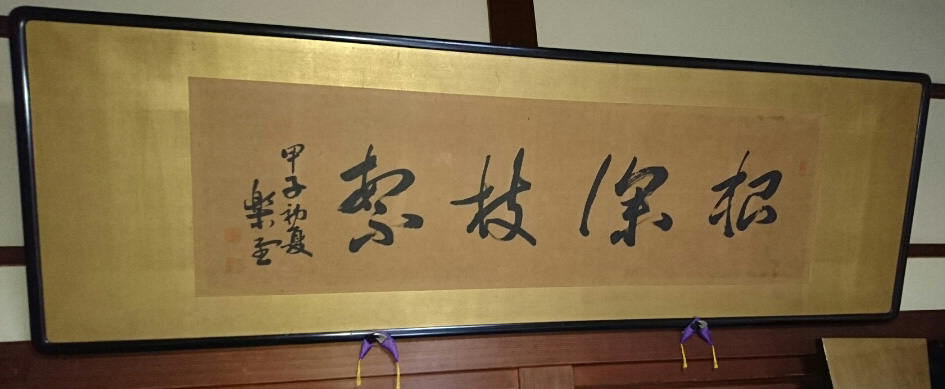 根深枝繁
甲子初夏
樂堂